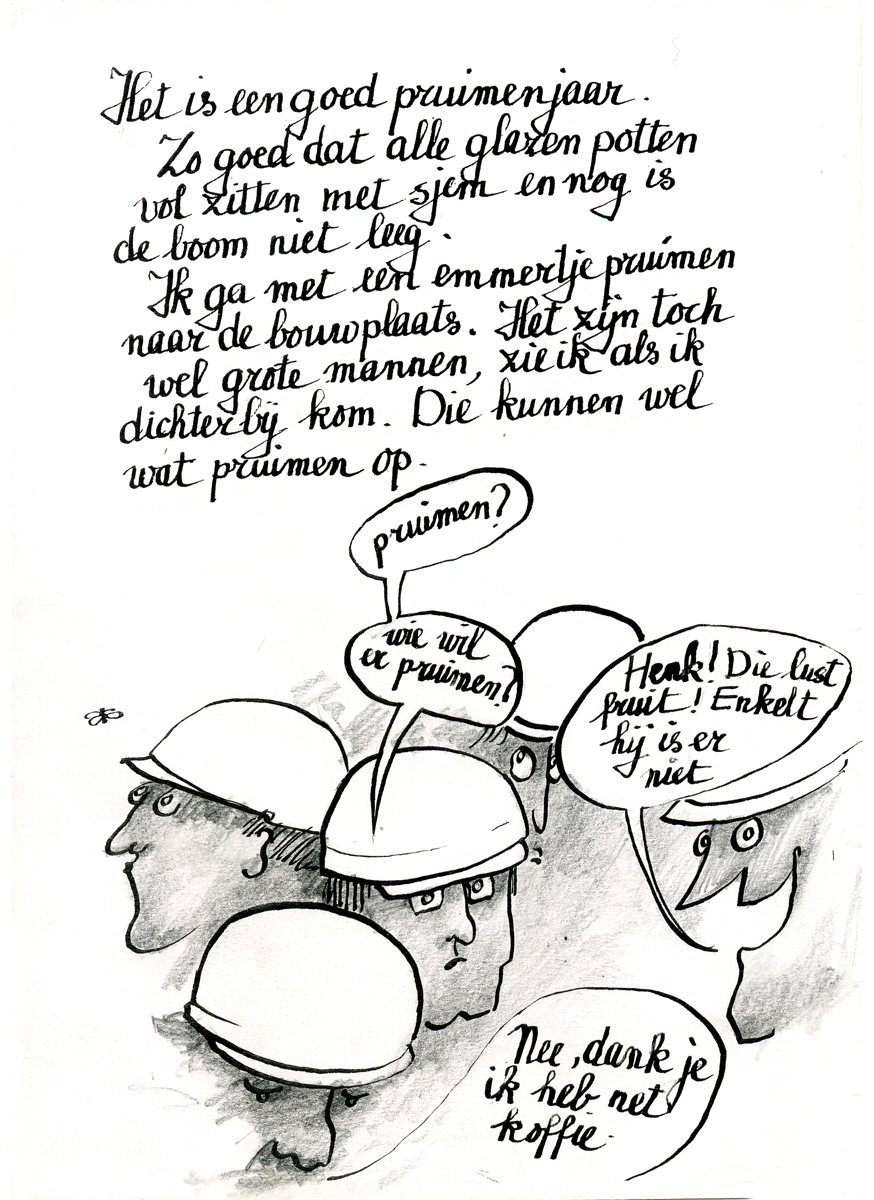 Het is een goed pruimenjaar.
Zo goed dat alle glazen potten
vol zitten met sjem en nog is
de boom niet leeg.
Ik ga met een emmertje pruimen
naar de bouwplaats. Het zijn toch
wel grote mannen, zie ik als ik
dichterbij kom. Die kunnen wel
wat pruimen op.
pruimen?
wie wil
er pruimen?
Henk! Die lust
fruit! Enkelt
hij is er
niet
Nee, dank je
ik heb net
koffie.